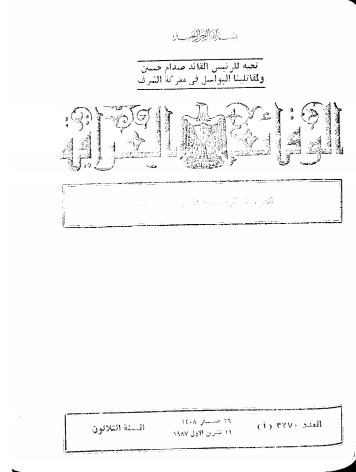 بسم الله الرحمن الرحيم
تحية للرئيس القائد صدام حسين
ولمقاتلينا البواسل في معركة الشرف
الوقائع العراقية
العدد ٣٢٧٠ (أ)
٢٦ صفر ١٤٠٨
١٩ تشرين الاول ١٩٨٧
السنة الثلاثون